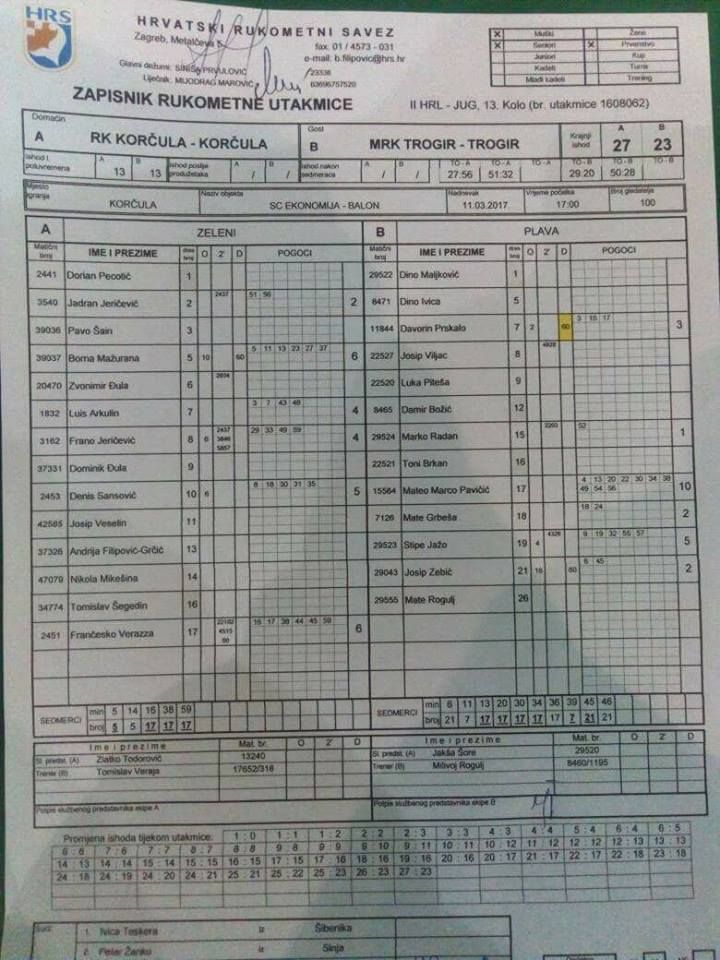 HRS
HRVATSKI RUKOMETNI SAVEZ
Zagreb, Metalčeva 5 fax. 01 / 4573 - 031
e-mail: b.filipovic@hrs.hr
Glavni dežurni: SINIŠA PRVULOVIĆ /23336
Liječnik: MIJODRAG MAROVIĆ 63696757520
X Muški Žene
X Seniori X Prvenstvo
Juniori Kup
Kadeti Turnir
Mlađi kadeti Trening
ZAPISNIK RUKOMETNE UTAKMICE II HRL - JUG, 13. Kolo (br. utakmice 1608062)
Domaćin Gost Krajnji ishod A B
A RK KORČULA - KORČULA B MRK TROGIR - TROGIR 27 23
ishod I poluvremena A 13 B 13 ishod poslije produžetaka A / B / ishod nakon sedmeraca A / B / TO - A 27:56 TO - A 51:32 TO - B 29:20 TO - B 50:28 TO - B
Mjesto igranja KORČULA Naziv objekta SC EKONOMIJA - BALON Nadnevak 11.03.2017 Vrijeme početka 17:00 Broj gledatelja 100
A ZELENI
Matični broj IME I PREZIME dres broj O 2' D POGOCI
2441 Dorian Pecotić 1
3540 Jadran Jeričević 2 2437 51 56 2
39036 Pavo Šain 3
39037 Borna Mažurana 5 10 60 5 11 13 23 27 37 6
20470 Zvonimir Đula 6
1832 Luis Arkulin 7 3 7 43 48 4
3162 Frano Jeričević 8 6 2437 3846 5857 29 33 49 59 4
37331 Dominik Đula 9
2453 Denis Sansović 10 6 8 18 30 31 35 5
42585 Josip Veselin 11
37326 Andrija Filipović-Grčić 13
47079 Nikola Mikešina 14
34774 Tomislav Šegedin 16
2451 Frančesko Verazza 17 16 17 38 44 45 59 6
B PLAVA
Matični broj IME I PREZIME dres broj O 2' D POGOCI
29522 Dino Maljković 1
8471 Dino Ivica 5
11844 Davorin Prskalo 7 2 60 3 16 17 3
22527 Josip Viljac 8 4928
22520 Luka Piteša 9
8465 Damir Božić 12
29524 Marko Radan 15 52 1
22521 Toni Brkan 16
15564 Mateo Marco Pavičić 17 4 13 20 22 30 34 38 49 54 56 10
7126 Mate Grbeša 18 18 24 2
29523 Stipe Jažo 19 4 4328 9 19 32 55 57 5
29043 Josip Zebić 21 16 60 6 45 2
29555 Mate Rogulj 26
SEDMERCI min 5 14 16 38 59
broj 5 5 17 17 17
SEDMERCI min 6 11 13 20 30 34 36 39 45 46
broj 21 7 17 17 17 17 17 7 21 21
Ime i prezime Mat. br. O 2' D
Sl. predst. (A) Zlatko Todorović 13240
Trener (B) Tomislav Veraja 17652/316
Potpis službenog predstavnika ekipe A
Ime i prezime Mat. br. O 2' D
Sl. predst. (A) Jakša Šore 29520
Trener (B) Milivoj Rogulj 8460/1195
Potpis službenog predstavnika ekipe B
Promjena ishoda tijekom utakmice: 1 : 0 1 : 1 1 : 2 2 : 2 2 : 3 3 : 3 4 : 3 4 : 4 5 : 4 6 : 4 6 : 5
6 : 6 7 : 6 7 : 7 8 : 7 8 : 8 9 : 8 9 : 9 9 : 10 9 : 11 10 : 11 10 : 12 11 : 12 12 : 12 12 : 13 13 : 13
14 : 13 14 : 14 15 : 14 15 : 15 16 : 15 17 : 15 17 : 16 18 : 16 19 : 16 20 : 16 20 : 17 21 : 17 22 : 17 22 : 18 23 : 18
24 : 18 24 : 19 24 : 20 24 : 21 25 : 21 25 : 22 25 : 23 26 : 23 27 : 23
Suci: 1. Ivica Teskera iz Šibenika
2. Petar Žanko iz Sinja